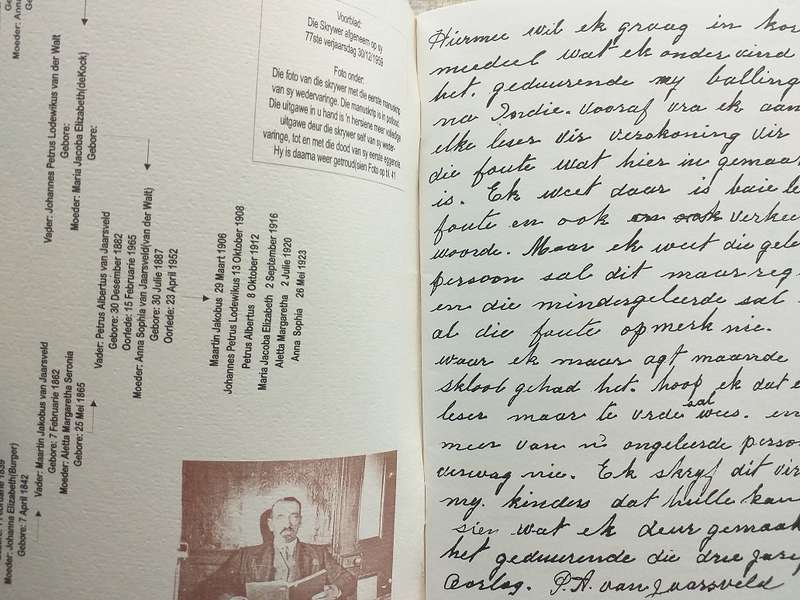 Voorblad:
Die Skrywer afgeneem op sy
77ste verjaarsdag 30/12/1959
Foto onder:
Die foto van die skrywer met die eerste manuskrip
van sy wedervaringe. Die manuskrip is in potlood.
Die uitgawe in u hand is 'n hersiene meer volledige
uitgawe deur die skrywer self van sy weder-
varinge, tot en met die dood van sy eerste eggenote.
Hy is daarna weer getroud(sien Foto op bl. 41
Moeder: Anna
Vader: Johannes Petrus Lodewikus van der Walt
Gebore:
Moeder: Maria Jacoba Elizabeth(deKock)
Gebore:
Vader: Petrus Albertus van Jaarsveld
Gebore: 30 Desember 1882
Oorlede: 15 Februarie 1965
Moeder: Anna Sophia van Jaarsveld(van der Walt)
Gebore: 30 Julie 1887
Oorlede: 23 April 1952
Maartin Jakobus 29 Maart 1906
Johannes Petrus Lodewikus 13 Oktober 1908
Petrus Albertus 8 Oktober 1912
Maria Jacoba Elizabeth 2 September 1916
Aletta Margaretha 2 Julie 1920
Anna Sophia 26 Mei 1923
Vader: Maartin Jakobus van Jaarsveld
Gebore: 7 Februarie 1862
Moeder: Aletta Margaretha Seronia
Gebore: 25 Mei 1865
Februarie 1839
Moeder: Johanna Elizabeth(Burger)
Gebore: 7 April 1842
Hiermee wil ek graag in kor
meedeel wat ek ondervind
het. geduurende my balling
na Indie. vooraf vra ek aan
elke leser vir veroskoning vir
die foute wat hier in gemaak
is. Ek weet daar is baie
foute en ook en ook verkee
woorde. Maar ek weet die gele
persoon sal dit maar reg
en die mindergeleerde sal
al die foute opmerk nie.
waar ek maar agt maande
skool gehad het. hoop ek dat
leser maar te vrde sal wees. en
meer van n ongeleerde perso
verwag nie. Ek skryf dit vir
my. kinders dat hulle kan
sien wat ek deur gemaak
het geduurende die drie jarig
Oorlog. P.A. van Jaarsveld